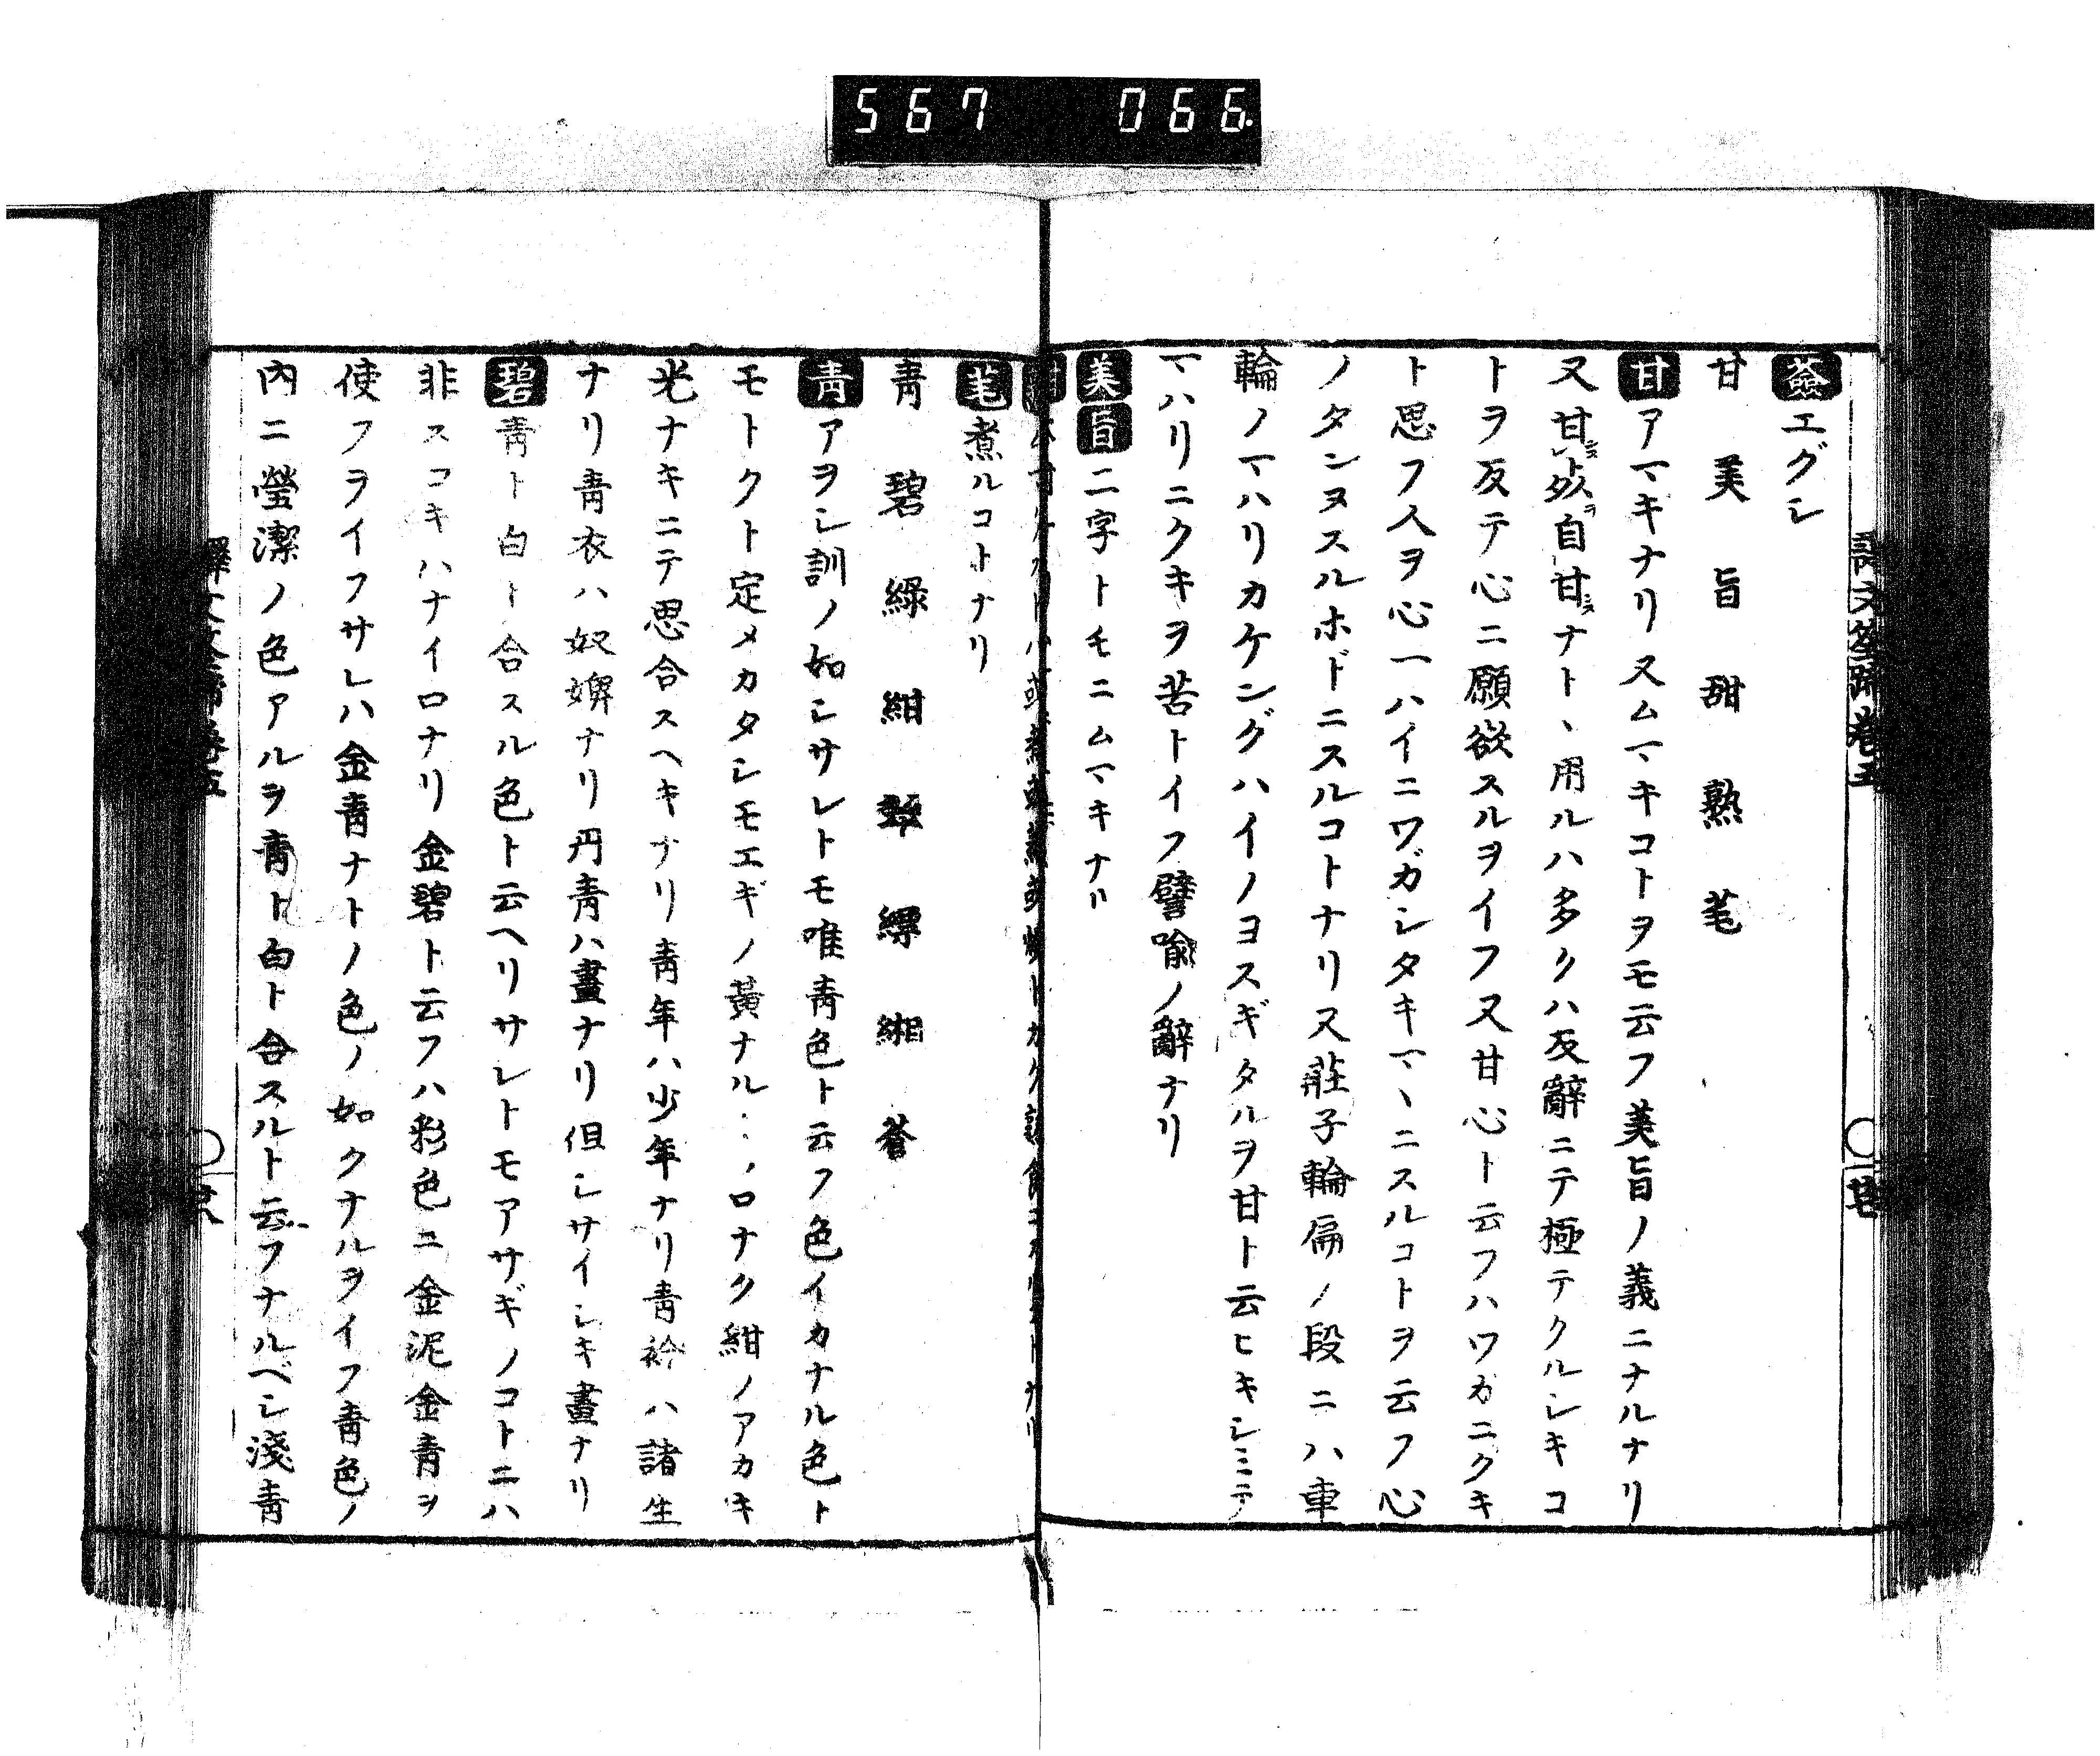 567 066.
譯文筌蹄卷五
エグシ
甘 美 旨 甜 熟 芼
甘アマキナリ又ムマキコトヲモ云フ美旨ノ義ニナルナリ
又甘ンシ歩ヲ自甘ンシナト丶用ルハ多クハ反辭ニテ極テクルシキコ
トヲ反テ心ニ願欲スルヲイフ又甘心ト云フハワカニクキ
ト思フ人ヲ心一ハイニワガシタキマ丶ニスルコトヲ云フ心
ノタンヌスルホドニスルコトナリ又莊子輪扁ノ段ニハ車
輪ノマハリカケングハイノヨスギタルヲ甘ト云ヒキシミテ
マハリニクキヲ苦トイフ譬喩ノ辭ナリ
美旨二字トモニムマキナリ
芼煮ルコトナリ
青 碧 綠 紺 縹 緗 蒼
青アヲシ訓ノ如シサレトモ唯青色ト云フ色イカナル色ト
モトクト定メカタシモエギノ黃ナル ロナク紺ノアカキ
光ナキニテ思合スヘキナリ青年ハ少年ナリ青衿ハ諸生
ナリ青衣ハ奴婢ナリ丹青ハ畫ナリ但シサイシキ畫ナリ
碧青ト白ト合スル色ト云ヘリサレトモアサギノコトニハ
非スコキハナイロナリ金碧ト云フハ彩色ニ金泥金青ヲ
使フヲイフサレハ金青ナトノ色ノ如クナルヲイフ青色ノ
內ニ瑩潔ノ色アルヲ青ト白ト合スルト云フナルベシ淺青